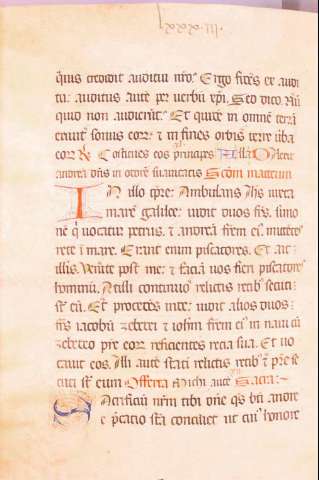 quis credidit auditui nr̄o. Ergo fides ex audi
tu. auditus autē per verbū xp̄i. Sed dico. Nū
quid non audierūt. Et quidē in omnē terrā
exiuit sonus eorꝝ. & in fines orbis terre ūba
eorꝝ. Constitues eos principes Alla Dilexit
andreā dn̄s in odorē suauitatis Scd̄m matheum
IN illo tp̄re. Ambulans Ih̄s iuxta
mare galilee. uidit duos frēs. simo
nē q̇ uocatur petrus. ⁊ andreā frem ei᷒. mittētes
rete ī mare. Erant enim piscatores. Et ait
illis. Venite post me. ⁊ faciā uos fieri piscatores
hominū. At illi continuo relictis retib᷒ secuti
st̄ eū. Et procedēs inde. uidit alios duos.
frēs iacobū zebedei ⁊ ioh̄m frem ei᷒ in naui cū
zebedeo pr̄e eorꝝ reficientes recia sua. Et uo
cauit eos. Illi autē statī relictis retib᷒ ⁊ pr̄e se
cuti st̄ eum Offerēda Michi autē Sacra.
Sacrificiū nr̄m tibi dn̄e qs̄ bti andree
p̄catio sc̄a conciliet ut cui᷒ honore